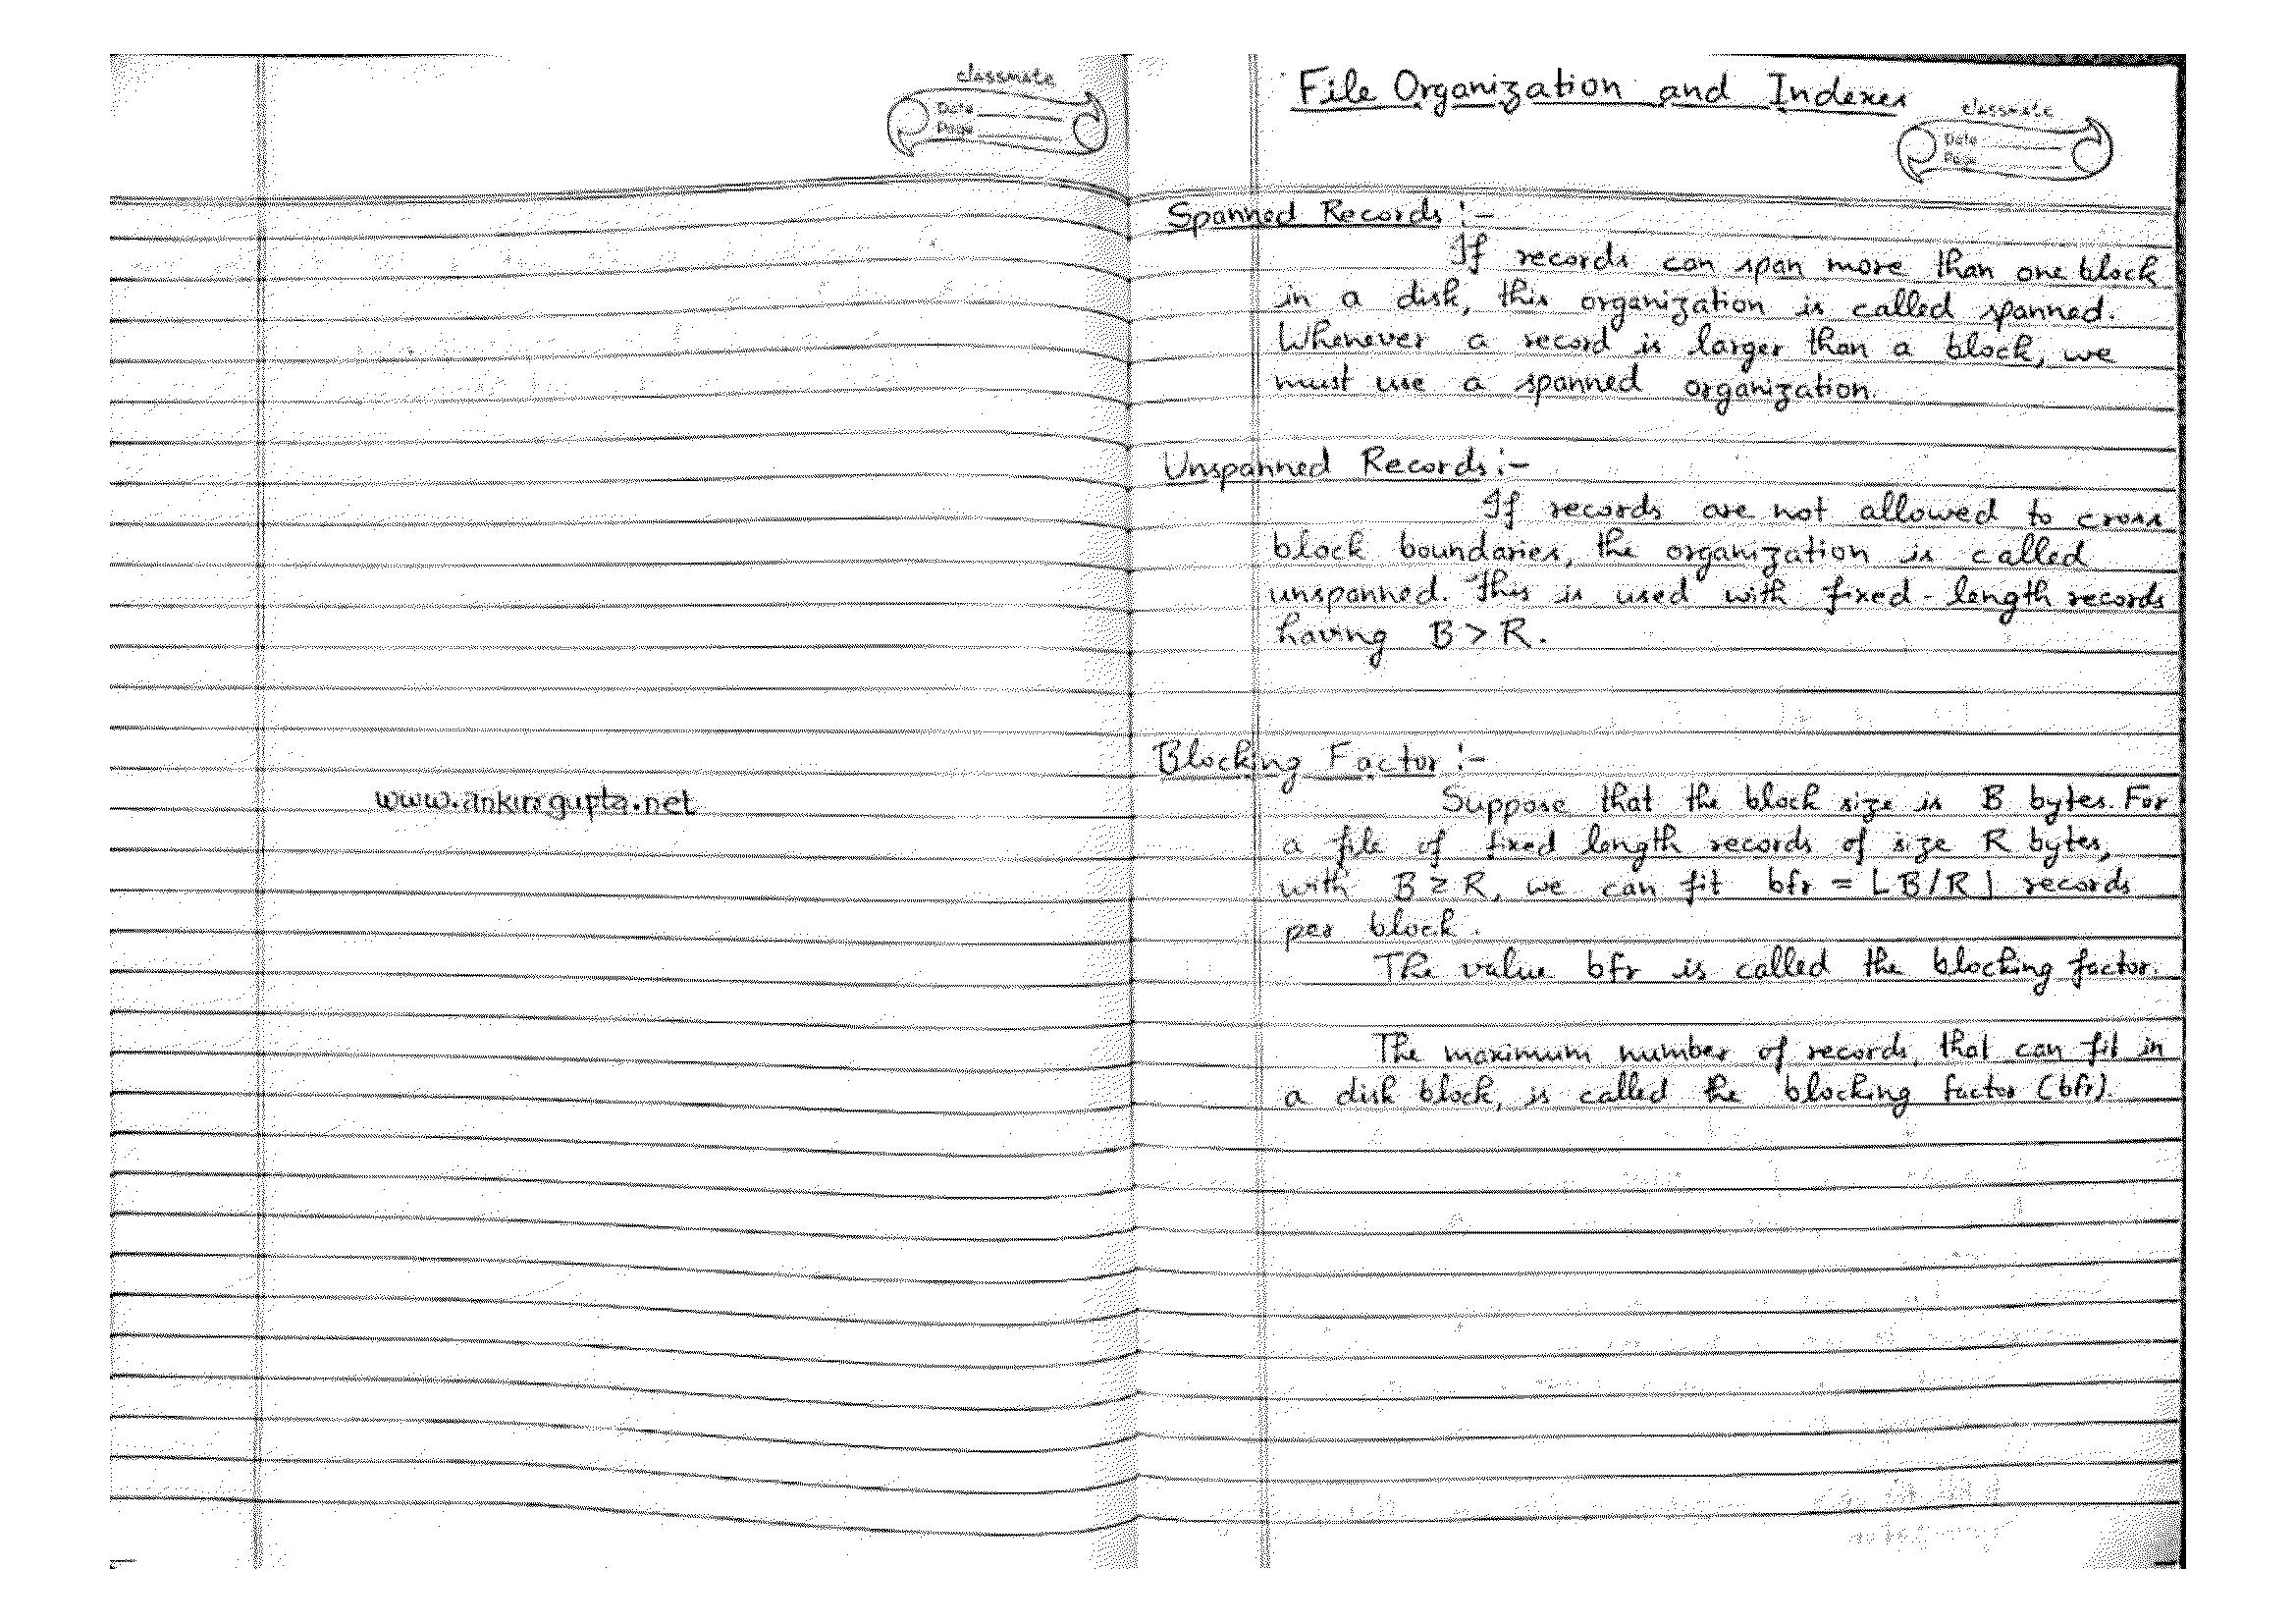 classmate
Date
Page
www.ankurgupta.net
File Organization and Indexes
classmate
Date
Page
Spanned Records :-
If records can span more than one block
in a disk, this organization is called spanned.
Whenever a record is larger than a block, we
must use a spanned organization.
Unspanned Records :-
If records are not allowed to cross
block boundaries, the organization is called
unspanned. This is used with fixed-length records
having B > R.
Blocking Factor :-
Suppose that the block size is B bytes. For
a file of fixed length records of size R bytes,
with B ≥ R, we can fit bfr = ⌊B/R⌋ records
per block.
The value bfr is called the blocking factor.
The maximum number of records, that can fit in
a disk block, is called the blocking factor (bfr).